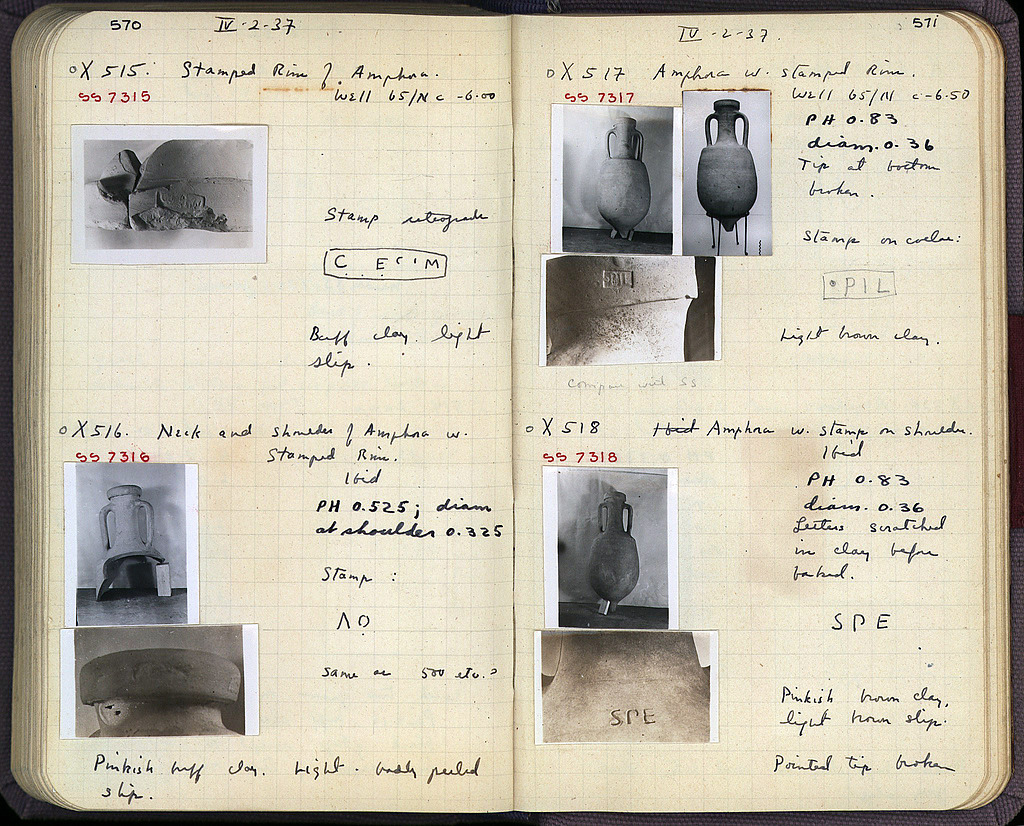 570
IV-2-37
X 515. Stamped Rim of Amphora.
SS 7315
Well 65/N c -6.00
Stamp retrograde
C. ECIM
Buff clay. light
slip.
X 516. Neck and shoulder of Amphora w.
SS 7316
Stamped Rim.
Ibid
PH 0.525; diam
at shoulder 0.325
Stamp :
ΛΟ
Same as 500 etc.?
Pinkish buff clay. Light - badly peeled
slip.
571
IV-2-37.
X 517 Amphora w. stamped Rim.
SS 7317
Well 65/N c -6.50
PH 0.83
diam. 0.36
Tip at bottom
broken.
Stamp on collar:
•PIL
Light brown clay.
Compare with SS
X 518 Ibid Amphora w. stamp on shoulder.
SS 7318
Ibid
PH 0.83
diam. 0.36
Letters scratched
in clay before
baked.
SPE
SPE
Pinkish brown clay,
light brown slip.
Pointed tip broken